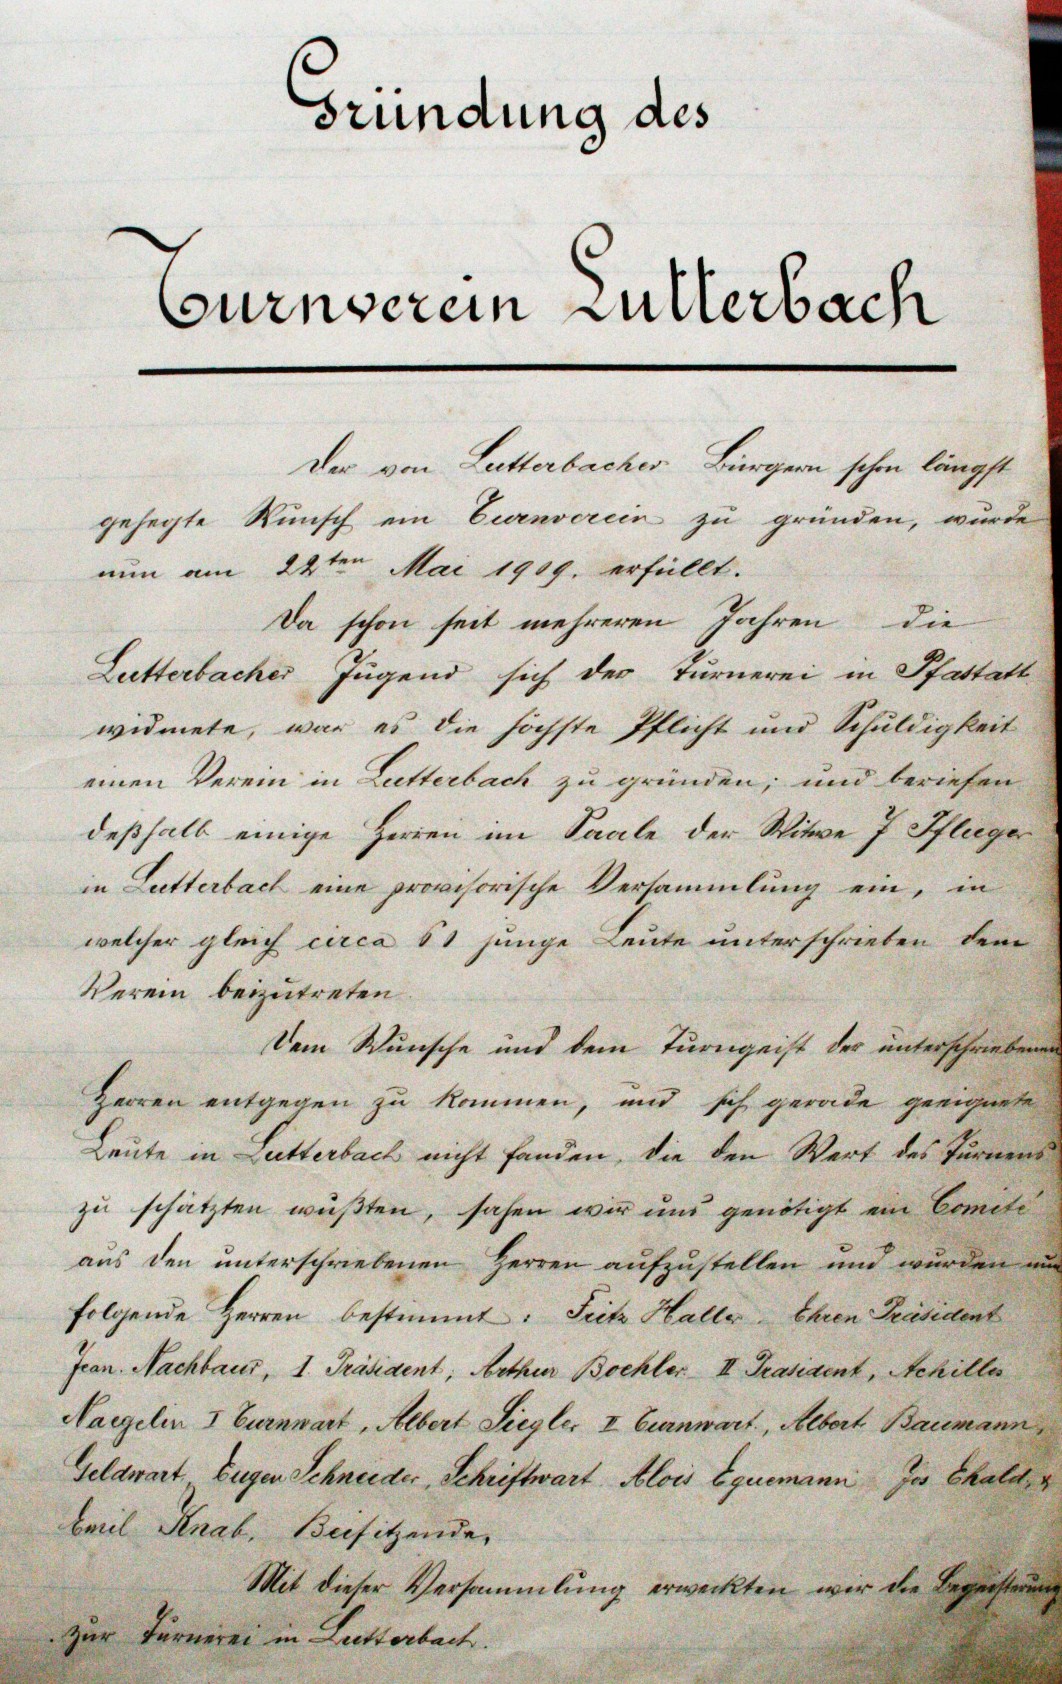 Gründung des
Turnverein Lutterbach
Der von Lutterbacher Bürgern schon längst
gehegte Wunsch ein Turnverein zu gründen, wurde
nun am 22ten Mai 1909. erfüllt.
Da schon seit mehreren Jahren die
Lutterbacher Jugend sich der Turnerei in Pfastatt
widmete, war es die höchste Pflicht und Schuldigkeit
einen Verein in Lutterbach zu gründen; und beriefen
deßhalb einige Herren im Saale der Witwe J Pflüger
in Lutterbach eine provisorische Versammlung ein, in
welcher gleich circa 61 junge Leute unterschrieben dem
Verein beizutreten.
Dem Wunsche und dem Turngeist der unterschriebenen
Herren entgegen zu kommen, und sich gerade geeignete
Leute in Lutterbach nicht fanden, die den Wert des Turnens
zu schätzten wußten, sahen wir uns genötigt ein Comité
aus den unterschriebenen Herren aufzustellen und wurden nun
folgende Herren bestimmt: Fritz Haller Ehren Präsident
Jean. Nachbaur, I. Präsident, Arthur Boehler II Präsident, Achilles
Naegelin I Turnwart, Albert Siegler II Turnwart., Albert Baumann,
Geldwart, Eugen Schneider, Schriftwart Alois Equemann Jos Ehald, &
Emil Knab, Beisitzende,
Mit dieser Versammlung erweckten wir die Begeisterung
zur Turnerei in Lutterbach.